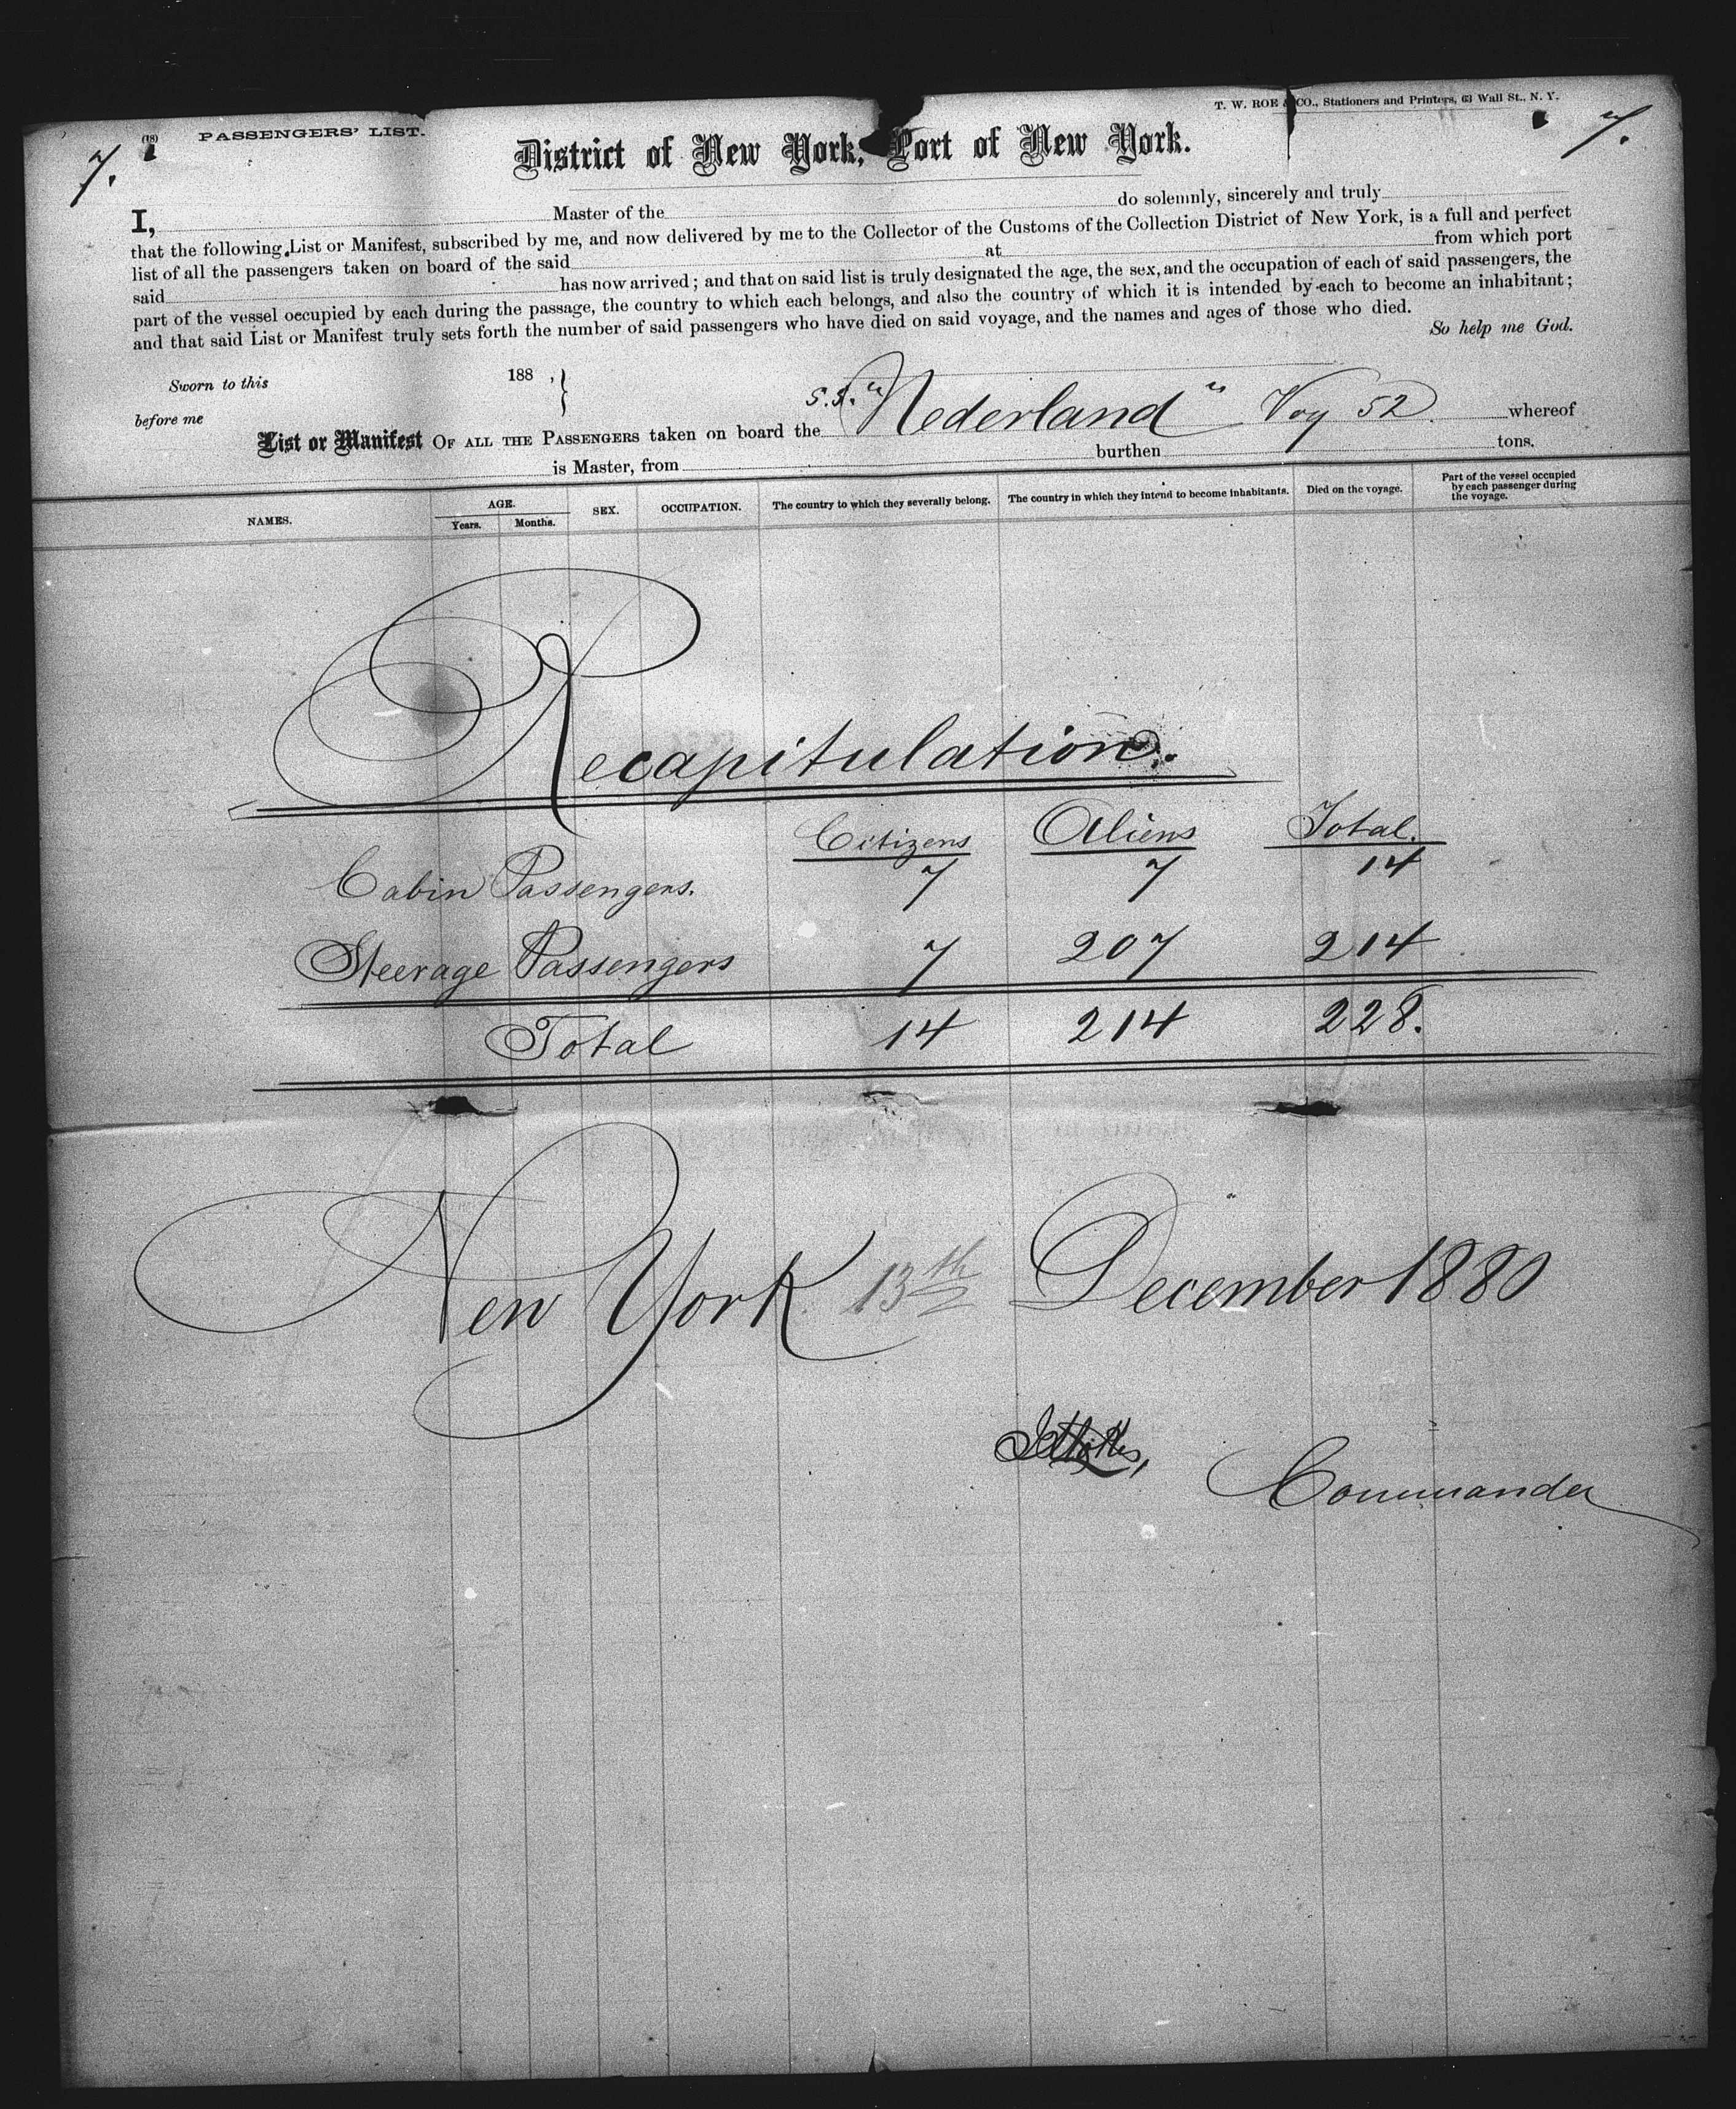 T. W. ROE & CO., Stationers and Printers, 63 Wall St., N. Y.
7. (18) PASSENGERS' LIST. 7.
District of New York, Port of New York.
I, Master of the do solemnly, sincerely and truly
that the following List or Manifest, subscribed by me, and now delivered by me to the Collector of the Customs of the Collection District of New York, is a full and perfect
list of all the passengers taken on board of the said at from which port
said has now arrived; and that on said list is truly designated the age, the sex, and the occupation of each of said passengers, the
part of the vessel occupied by each during the passage, the country to which each belongs, and also the country of which it is intended by each to become an inhabitant;
and that said List or Manifest truly sets forth the number of said passengers who have died on said voyage, and the names and ages of those who died.
So help me God.
Sworn to this 188 , }
before me
List or Manifest OF ALL THE PASSENGERS taken on board the S.S. "Nederland" Voy 52 whereof
is Master, from burthen tons.
NAMES. AGE. Years. Months. SEX. OCCUPATION. The country to which they severally belong. The country in which they intend to become inhabitants. Died on the voyage. Part of the vessel occupied by each passenger during the voyage.
Recapitulation.
Citizens Aliens Total.
Cabin Passengers. 7 7 14
Steerage Passengers 7 207 214
Total 14 214 228.
New York 13th December 1880
Commander